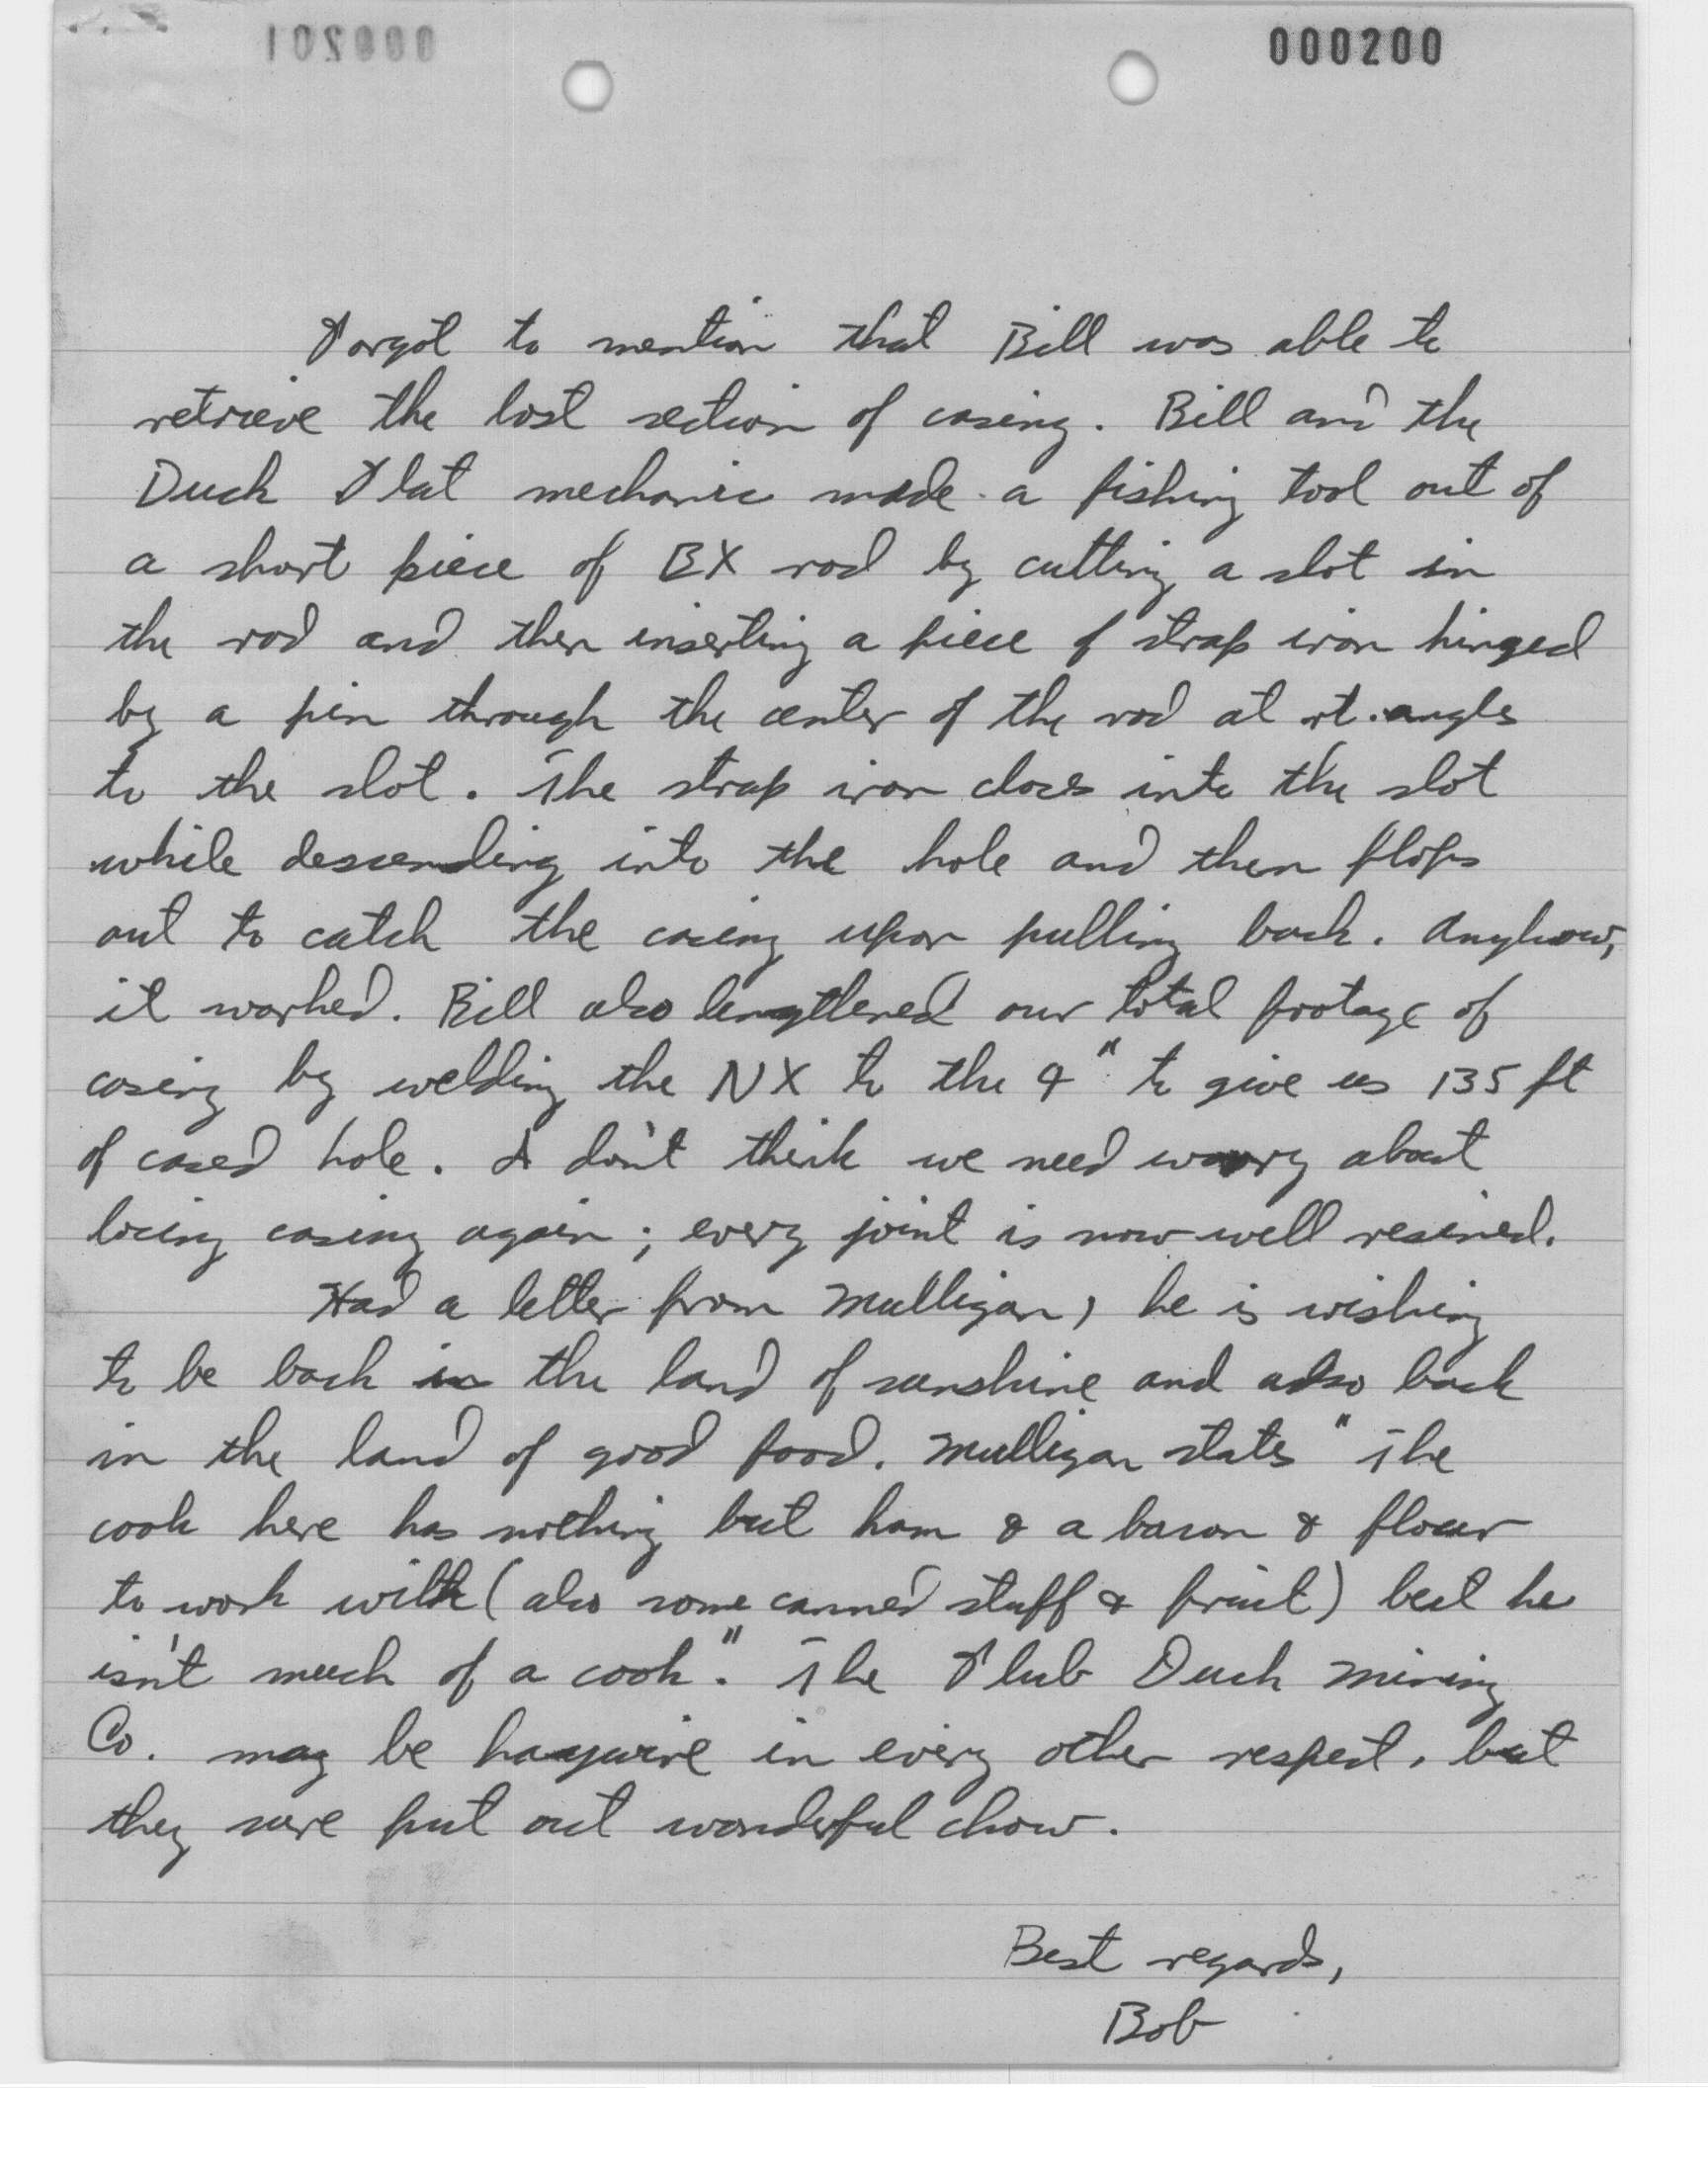 000200
Forgot to mention that Bill was able to
retrieve the lost section of casing. Bill and the
Duck Flat mechanic made a fishing tool out of
a short piece of BX rod by cutting a slot in
the rod and then inserting a piece of strap iron hinged
by a pin through the center of the rod at rt. angles
to the slot. The strap iron closes into the slot
while descending into the hole and then flops
out to catch the casing upon pulling back. Anyhow,
it worked. Bill also lengthened our total footage of
casing by welding the NX to the 4" to give us 135 ft
of cased hole. I don't think we need worry about
losing casing again; every joint is now well resined.
Had a letter from Mulligan, he is wishing
to be back in the land of sunshine and also back
in the land of good food. Mulligan states "The
cook here has nothing but ham & a bacon & flour
to work with (also some canned stuff & fruit) but he
isn't much of a cook." The Flub Duck Mining
Co. may be haywire in every other respect, but
they sure put out wonderful chow.
Best regards,
Bob